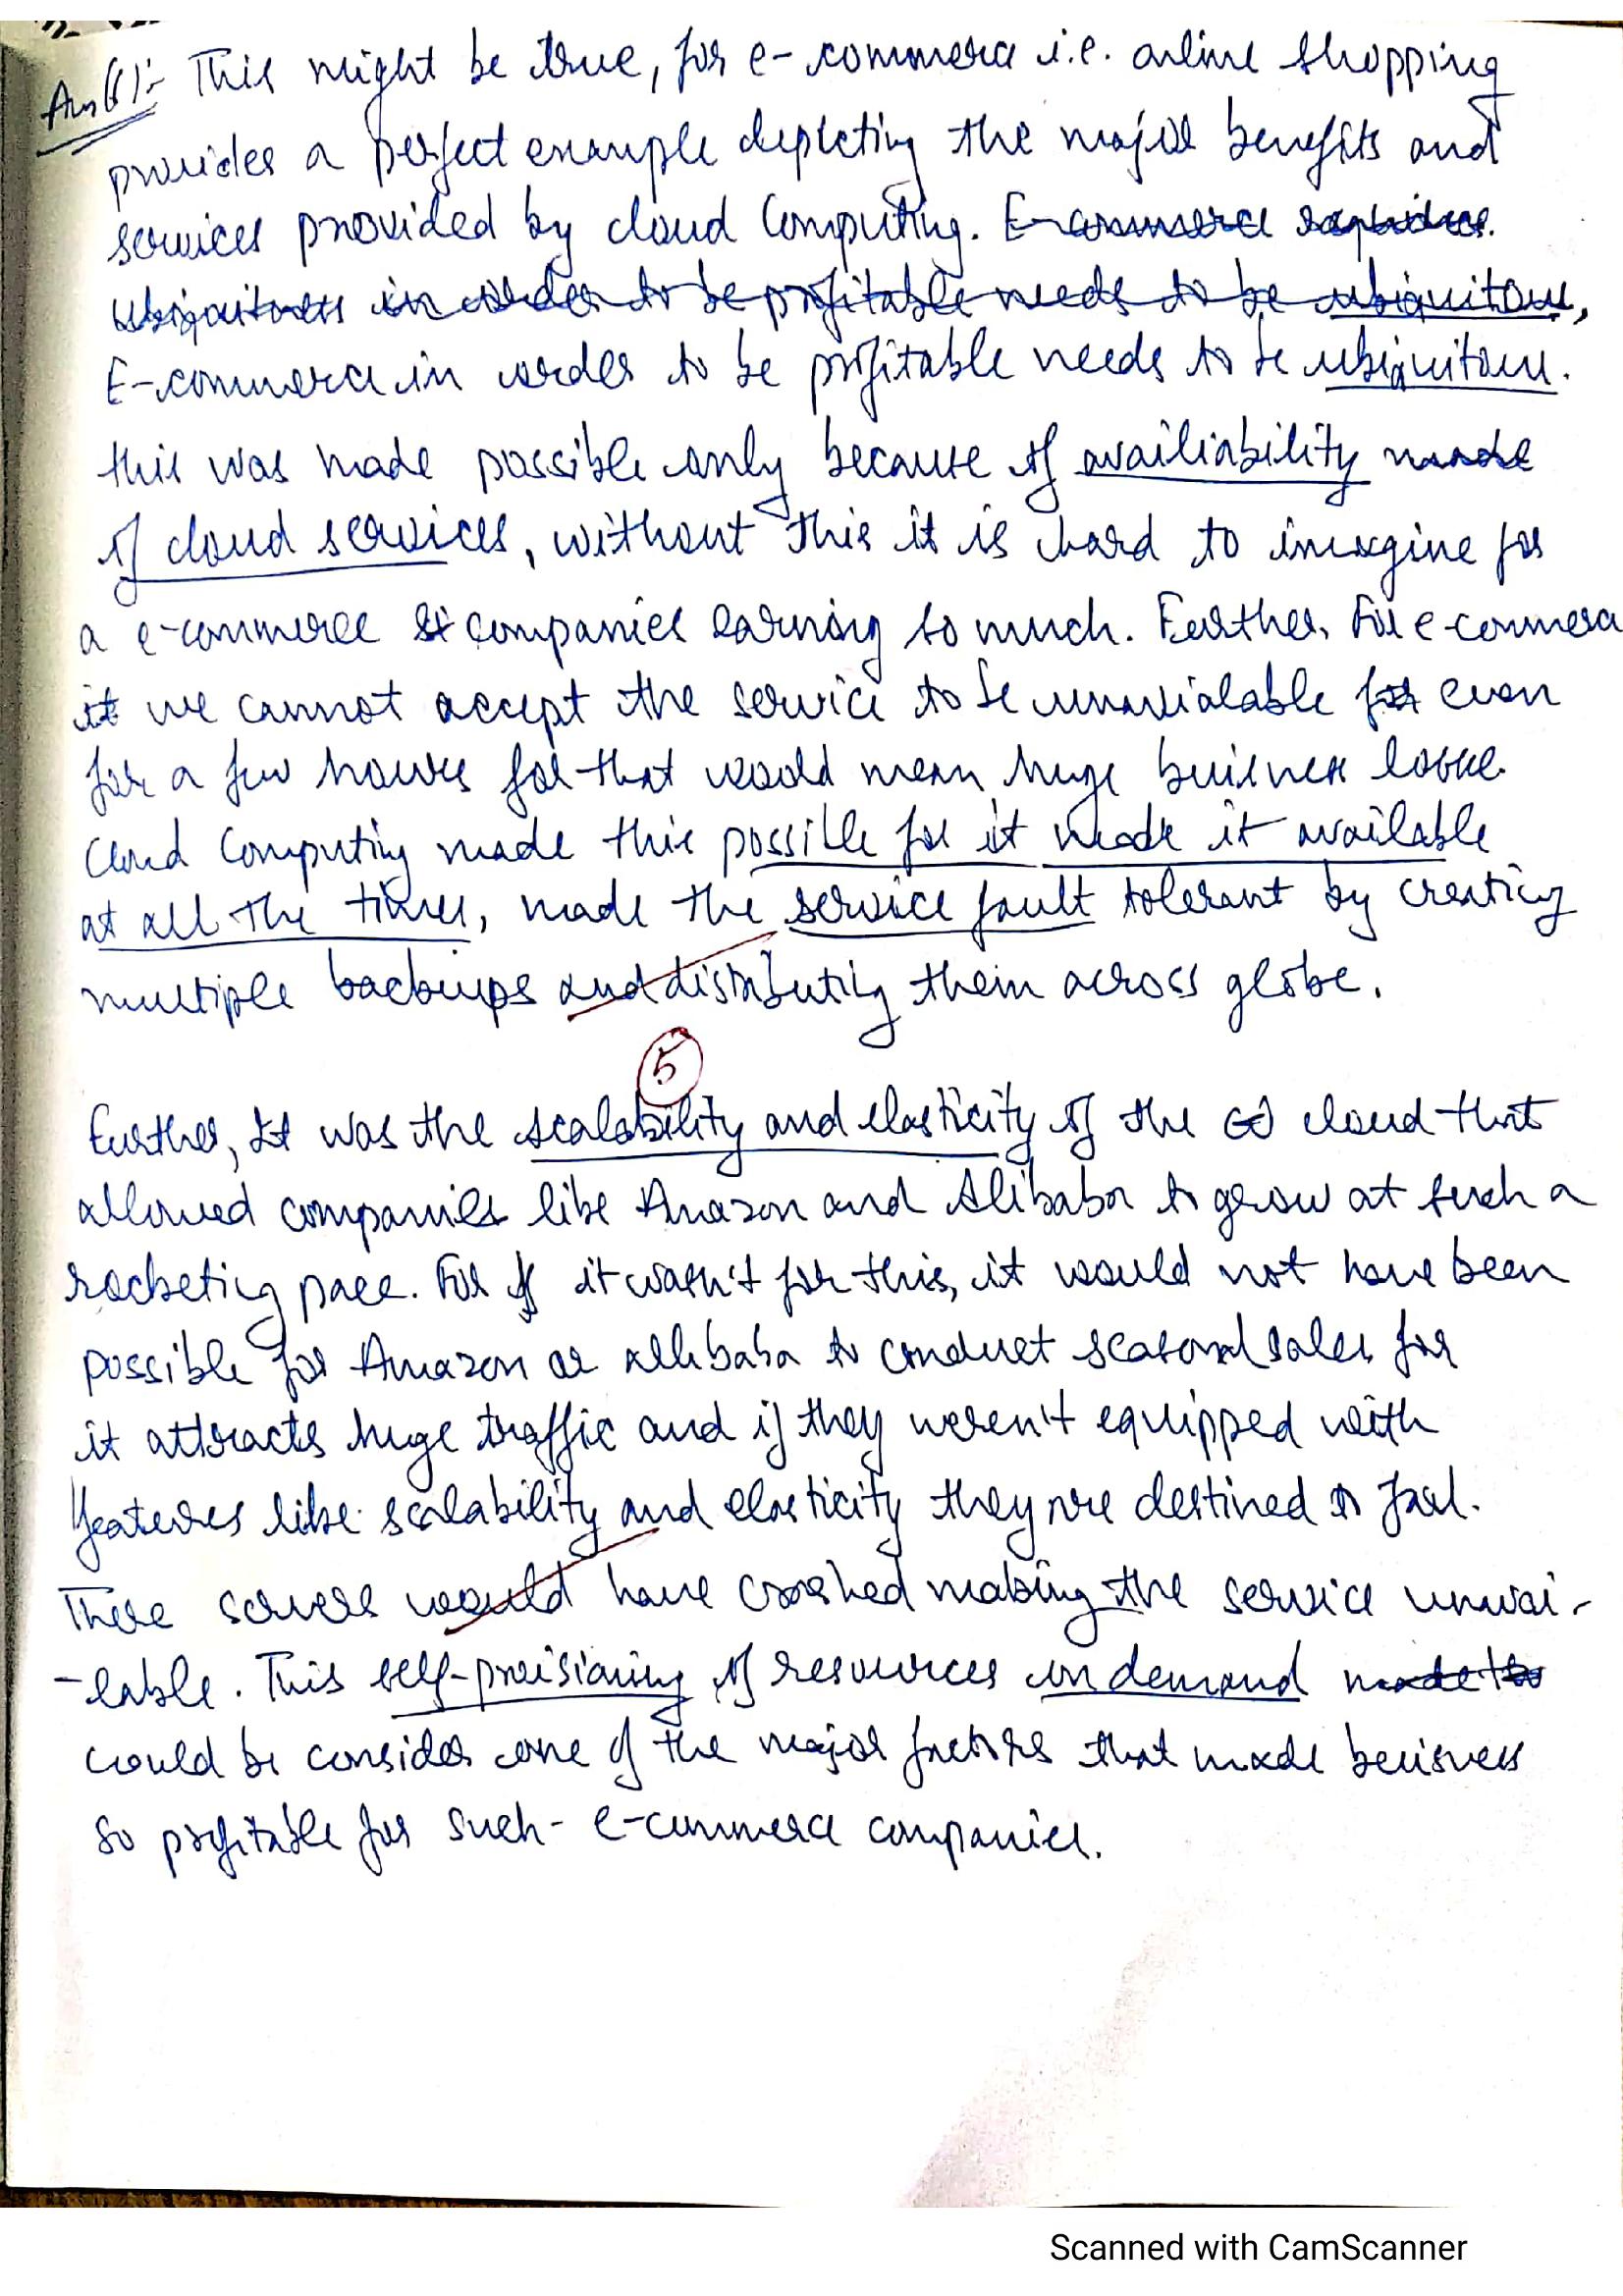 Ans(8):- This might be true, for e-commerce i.e. online shopping
provides a perfect example depicting the major benefits and
services provided by cloud Computing. E-commerce requires
ubiquitness in order to be profitable needs to be ubiquitous,
E-commerce in order to be profitable needs to be ubiquitous.
this was made possible only because of availiability made
of cloud services, without this it is hard to imagine for
a e-commerce companies earning so much. Further, For e-commerce
it we cannot accept the service to be unavialable for even
for a few hours for that would mean huge buisness losse.
Cloud Computing made this possible for it made it available
at all the times, made the service fault tolerant by creating
multiple backups and distributing them across globe.
5
Further, It was the scalability and elasticity of the co cloud that
allowed companies like Amazon and Alibaba to grow at such a
rocketing pace. For if it wasn't for this, it would not have been
possible for Amazon or Allibaba to conduct seasonal sales for
it attracts huge traffic and if they weren't equipped with
features like scalability and elasticity they are destined to fail.
There servers would have crashed making the service unvai-
-lable. This self-provisioning of resources on demand made to
could be consider one of the major factors that made buisness
so profitable for such- e-commerce companies.
Scanned with CamScanner